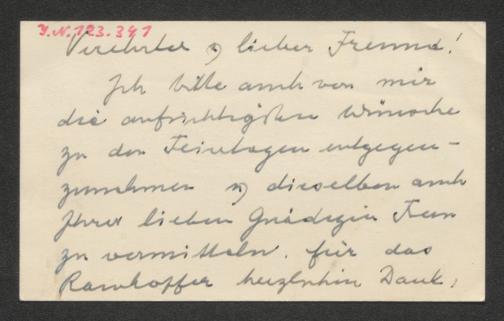 J.N. 123.341
Verehrter u lieber Freund!
Ich bitte auch von mir
die aufrichtigsten Wünsche
zu den Feiertagen entgegen-
zunehmen u dieselben auch
Ihrer lieben Gnädigen Frau
zu vermitteln. Für das
herzlichen Dank,